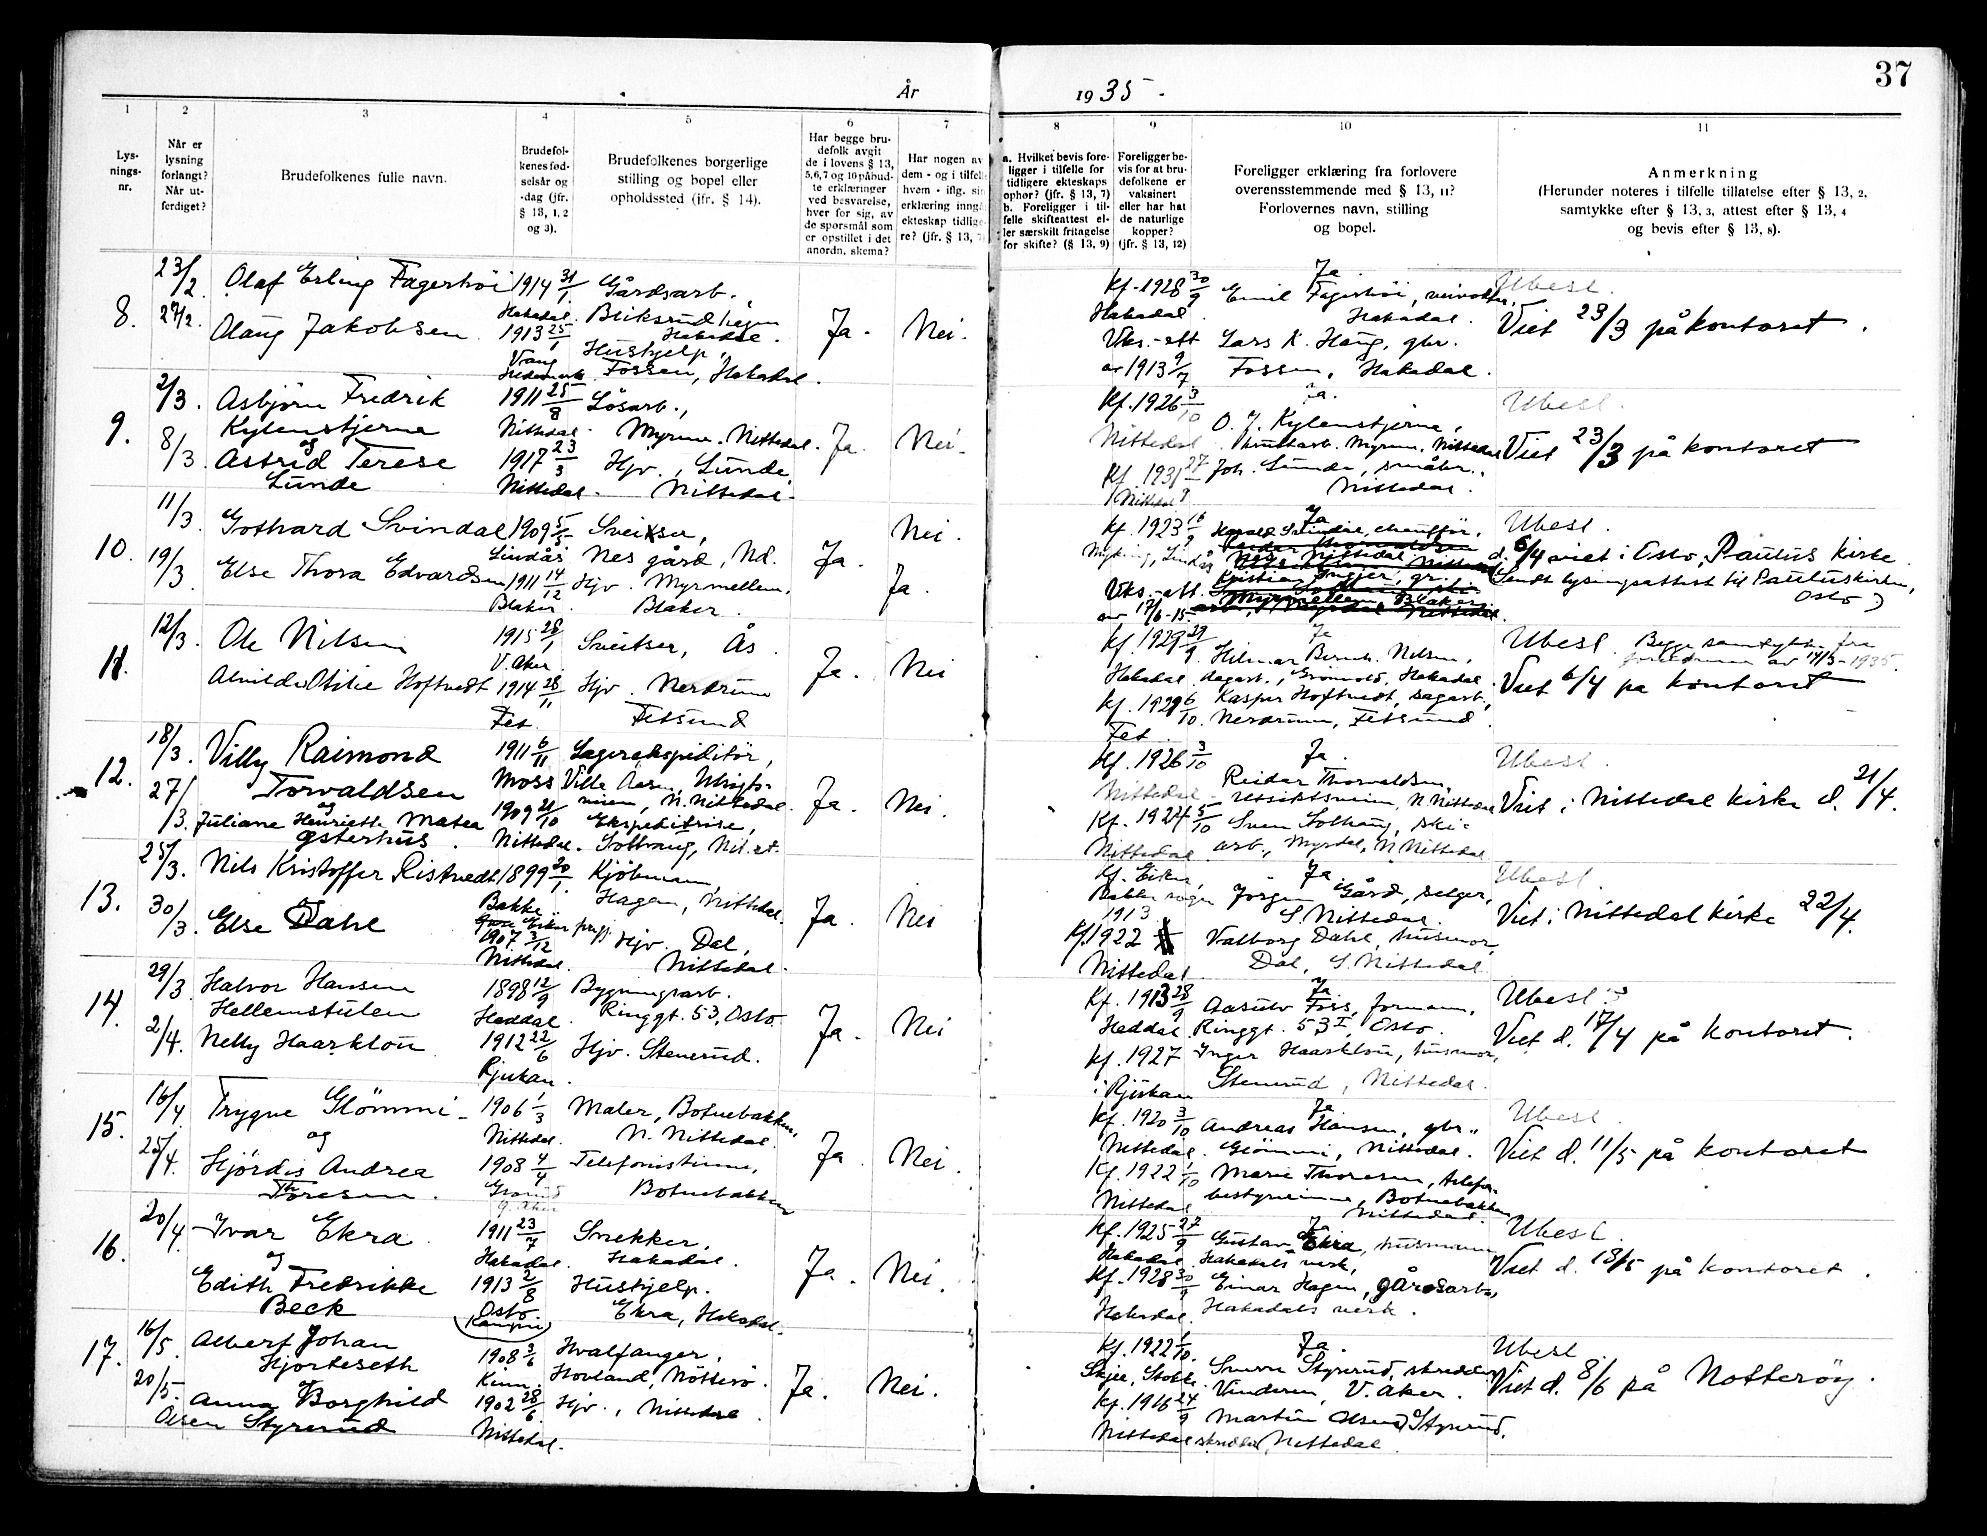 37
År 1935.
1 2 3 4 5 6 7 8 9 10 11
Lys-
nings-
nr.
Når er
lysning
forlangt?
Når ut-
ferdiget?
Brudefolkenes fulle navn.
Brudefol-
kenes fød-
selsår og
-dag (jfr.
§ 13, 1, 2
og 3).
Brudefolkenes borgerlige
stilling og bopel eller
opholdssted (jfr. § 14).
Har begge bru-
defolk avgit
de i lovens § 13,
5,6,7 og 10 påbud-
te erklæringer
ved besvarelse,
hver for sig, av
de spørsmål som
er opstillet i det
anordn. skema?
Har nogen av
dem - og i tilfelle
hvem - iflg. sin
erklæring inngå
ekteskap tidlige-
re? (jfr. § 13, 7)
a. Hvilket bevis fore-
ligger i tilfelle for
tidligere ekteskaps
ophør? (jfr. § 13, 7)
b. Foreligger i til-
felle skifteattest el-
ler særskilt fritagelse
for skifte? (§ 13, 9)
Foreligger be-
vis for at bru-
defolkene er
vaksinert
eller har hat
de naturlige
kopper?
(jfr. § 13, 12)
Foreligger erklæring fra forlovere
overensstemmende med § 13, 11?
Forlovernes navn, stilling
og bopel.
Anmerkning
(Herunder noteres i tilfelle tillatelse efter § 13, 2,
samtykke efter § 13, 3, attest efter § 13, 4
og bevis efter § 13, 8).
8.
23/2
27/2.
Olaf Erling Fagerhøi
Olaug Jakobsen
1914 31/1
Hakadal.
1913 25/1
Vang
Hedemark
Gårdsarb.,
Bliksrudhagen
Hakadal.
Hushjelp,
Fossen, Hakadal.
Ja.
Nei.
Kf. 1928 30/9
Hakadal.
Vks.-att
av 1913 9/7
Ja.
Emil Fagerhøi, veivokter,
Hakadal.
Lars K. Haug, gbr.
Fossen, Hakadal.
Ubesl.
Viet 23/3 på kontoret.
9.
2/3.
8/3.
Asbjørn Fredrik
Kylenstjerna
og
Astrid Terese
Lunde
1911 25/8
Nittedal.
1917 23/3
Nittedal.
Løsarb.,
Myrene. Nittedal.
Hjv., Lunde,
Nittedal.
Ja.
Nei.
Kf. 1926 3/10
Nittedal
Kf. 1931 27
Nittedal
Ja.
O. J. Kylenstjerna,
Myrene, Nittedal
Joh. Lunde, småbr.,
Nittedal.
Ubesl.
Viet 23/3 på kontoret
10.
11/3.
19/3
Gothard Svindal
Else Thora Edvardsen
1909 5/5
Lindås
1911 14/12
Blaker.
Sveitser,
Nes gård, Nd.
Hjv. Myrmellem,
Blaker.
Ja.
Nei.
Ja.
Kf. 1923 16/9
Vks.-att.
av 17/6-15.
Ja
Harald Svindal, chauffør,
Ubesl.
d. 6/4 viet i Oslo, Paulus Kirke
(Sendt lysningsattest til Pauluskirken,
Oslo)
11.
12/3.
Ole Nilsen
Alvilde Otilie Hoftvedt
1915 28/1
V. Aker.
1914 28/11
Fet.
Sveitser, Ås.
Hjv. Nerdrum
Fetsund
Ja.
Nei
Kf. 1929 29/9
Hakadal
Kf. 1929 6/10
Fet.
Ja
Hilmar Bernh. Nilsen,
dagarb., Grønvold, Hakadal.
Kasper Hoftvedt, sagarb.,
Nerdrum, Fetsund.
Ubesl. Begges samtykke fra
foreldrene av 14/3-1935.
Viet 6/4 på kontoret
12.
18/3.
27/3.
Villy Raimond
Torvaldsen
og
Juliane Henriette Matea
Østerhus.
1911 6/11
Moss
1909 21/10
Nittedal.
Lagerekspeditør,
Ville Aasen, Utsigts-
veien, N. Nittedal.
Ekspeditrise,
Solhaug, Nit.et.
Ja.
Nei.
Kf. 1926 3/10
Nittedal
Kf. 1924 5/10
Nittedal
Ja.
Reidar Thorvaldsen,
Utsiktsveien, N. Nittedal
Sven Solhaug, ski-
arb., Myrdal, N. Nittedal
Ubesl.
Viet i Nittedal kirke d. 21/4.
13.
25/3.
30/3
Nils Kristoffer Ristvedt
og
Else Dahl
1899 20/1
Bakke
Eiker
1907 3/12
Nittedal.
Kjøbmann,
Hagen, Nittedal.
Hjv. Dal,
Nittedal.
Ja.
Nei
Kf. Eiker,
Bakke sogn
1913
Kf. 1922
Nittedal
Ja.
Jørgen Gård, selger,
S. Nittedal.
Valborg Dahl, husmor,
Dal, S. Nittedal
Ubesl.
Viet i Nittedal kirke 22/4.
14.
29/3
2/4.
Halvor Hansen
Hellemstulen
Nelly Haarklou
1898 12/9
Heddal.
1912 22/6
Rjukan.
Bygningsarb.
Ringgt. 53, Oslo.
Hjv. Stenerud.
Ja.
Nei
Kf. 1913 28/9
Heddal
Kf. 1927
i Rjukan
Ja
Aasulv Foss, formann,
Ringgt. 53 I, Oslo.
Inger Haarklou, husmor,
Stenerud, Nittedal.
Ubesl.
Viet d. 17/4 på kontoret.
15.
16/4.
25/4.
Trygve Glömmi
og
Hjördis Andrea
Thoresen.
1906 1/3
Nittedal.
1908 4/4
Maler, Botnebakken,
N. Nittedal.
Telefonistinne,
Botnebakken
Ja.
Nei.
Kf. 1920 3/10
Nittedal.
Kf. 1922 1/10
Nittedal
Ja.
Andreas Hansen, gbr.,
Glömmi, Nittedal.
Marie Thoresen, telefon-
bestyrerinne, Botnebakken,
Nittedal.
Ubesl.
Viet d. 11/5 på kontoret
16.
20/4.
Ivar Ekra
og
Edith Fredrikke
Beck
1911 23/7
Hakadal.
1913 2/8
Oslo
Kampen
Snekker,
Hakadal.
Hushjelp.
Ekra, Hakadal.
Ja.
Nei.
Kf. 1925 27/9
Hakadal
Kf. 1928 30/9
Hakadal.
Ja
Gustav Ekra, husmann
Hakadals verk,
Einar Hagen, gårdsarb.,
Hakadals verk.
Ubesl.
Viet d. 18/5 på kontoret.
17.
16/5.
20/5.
Albert Johan
Hjorteseth
og
Anna Borghild
Olsen Styrerud
1908 3/6
Kinn.
1902 28/6
Nittedal.
Hvalfanger,
Hovland, Nötterö.
Hjv., Nittedal.
Ja.
Nei.
Kf. 1922 1/10.
Skjee, Stokke
Kf. 1916 24/9
Nittedal
Ja.
Snorre Styrerud, skredder,
Vinderen, V. Aker.
Martin Olsen Styrerud,
skredder, Nittedal
Ubesl.
Viet d. 8/6 på Nötteröy.